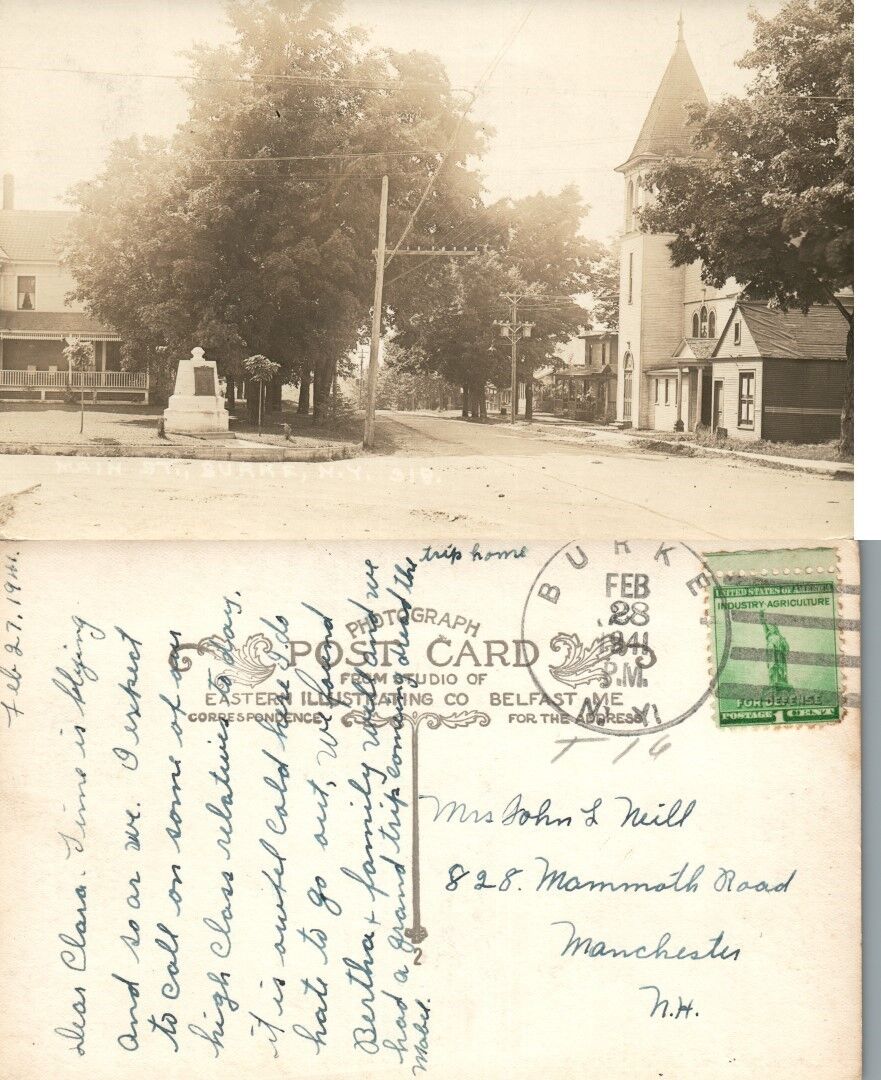 MAIN ST., BURKE, N.Y. 318.
trip home
BURKE
FEB
28
1941
P.M.
N.Y.
UNITED STATES OF AMERICA
INDUSTRY-AGRICULTURE
FOR DEFENSE
POSTAGE 1 CENT
PHOTOGRAPH
POST CARD
FROM STUDIO OF
EASTERN ILLUSTRATING CO BELFAST, ME
CORRESPONDENCE
FOR THE ADDRESS
T-16
Mrs John L Neill
828. Mammoth Road
Manchester
N.H.
2
Feb 27, 1941.
Dear Clara. Time is flying
and so ar we. I expect
to call on some of our
high class relatives to day.
it is awfel cold here I do
hate to go out, we found
Bertha + family well and we
had a grand trip coming dread the
Mabel.